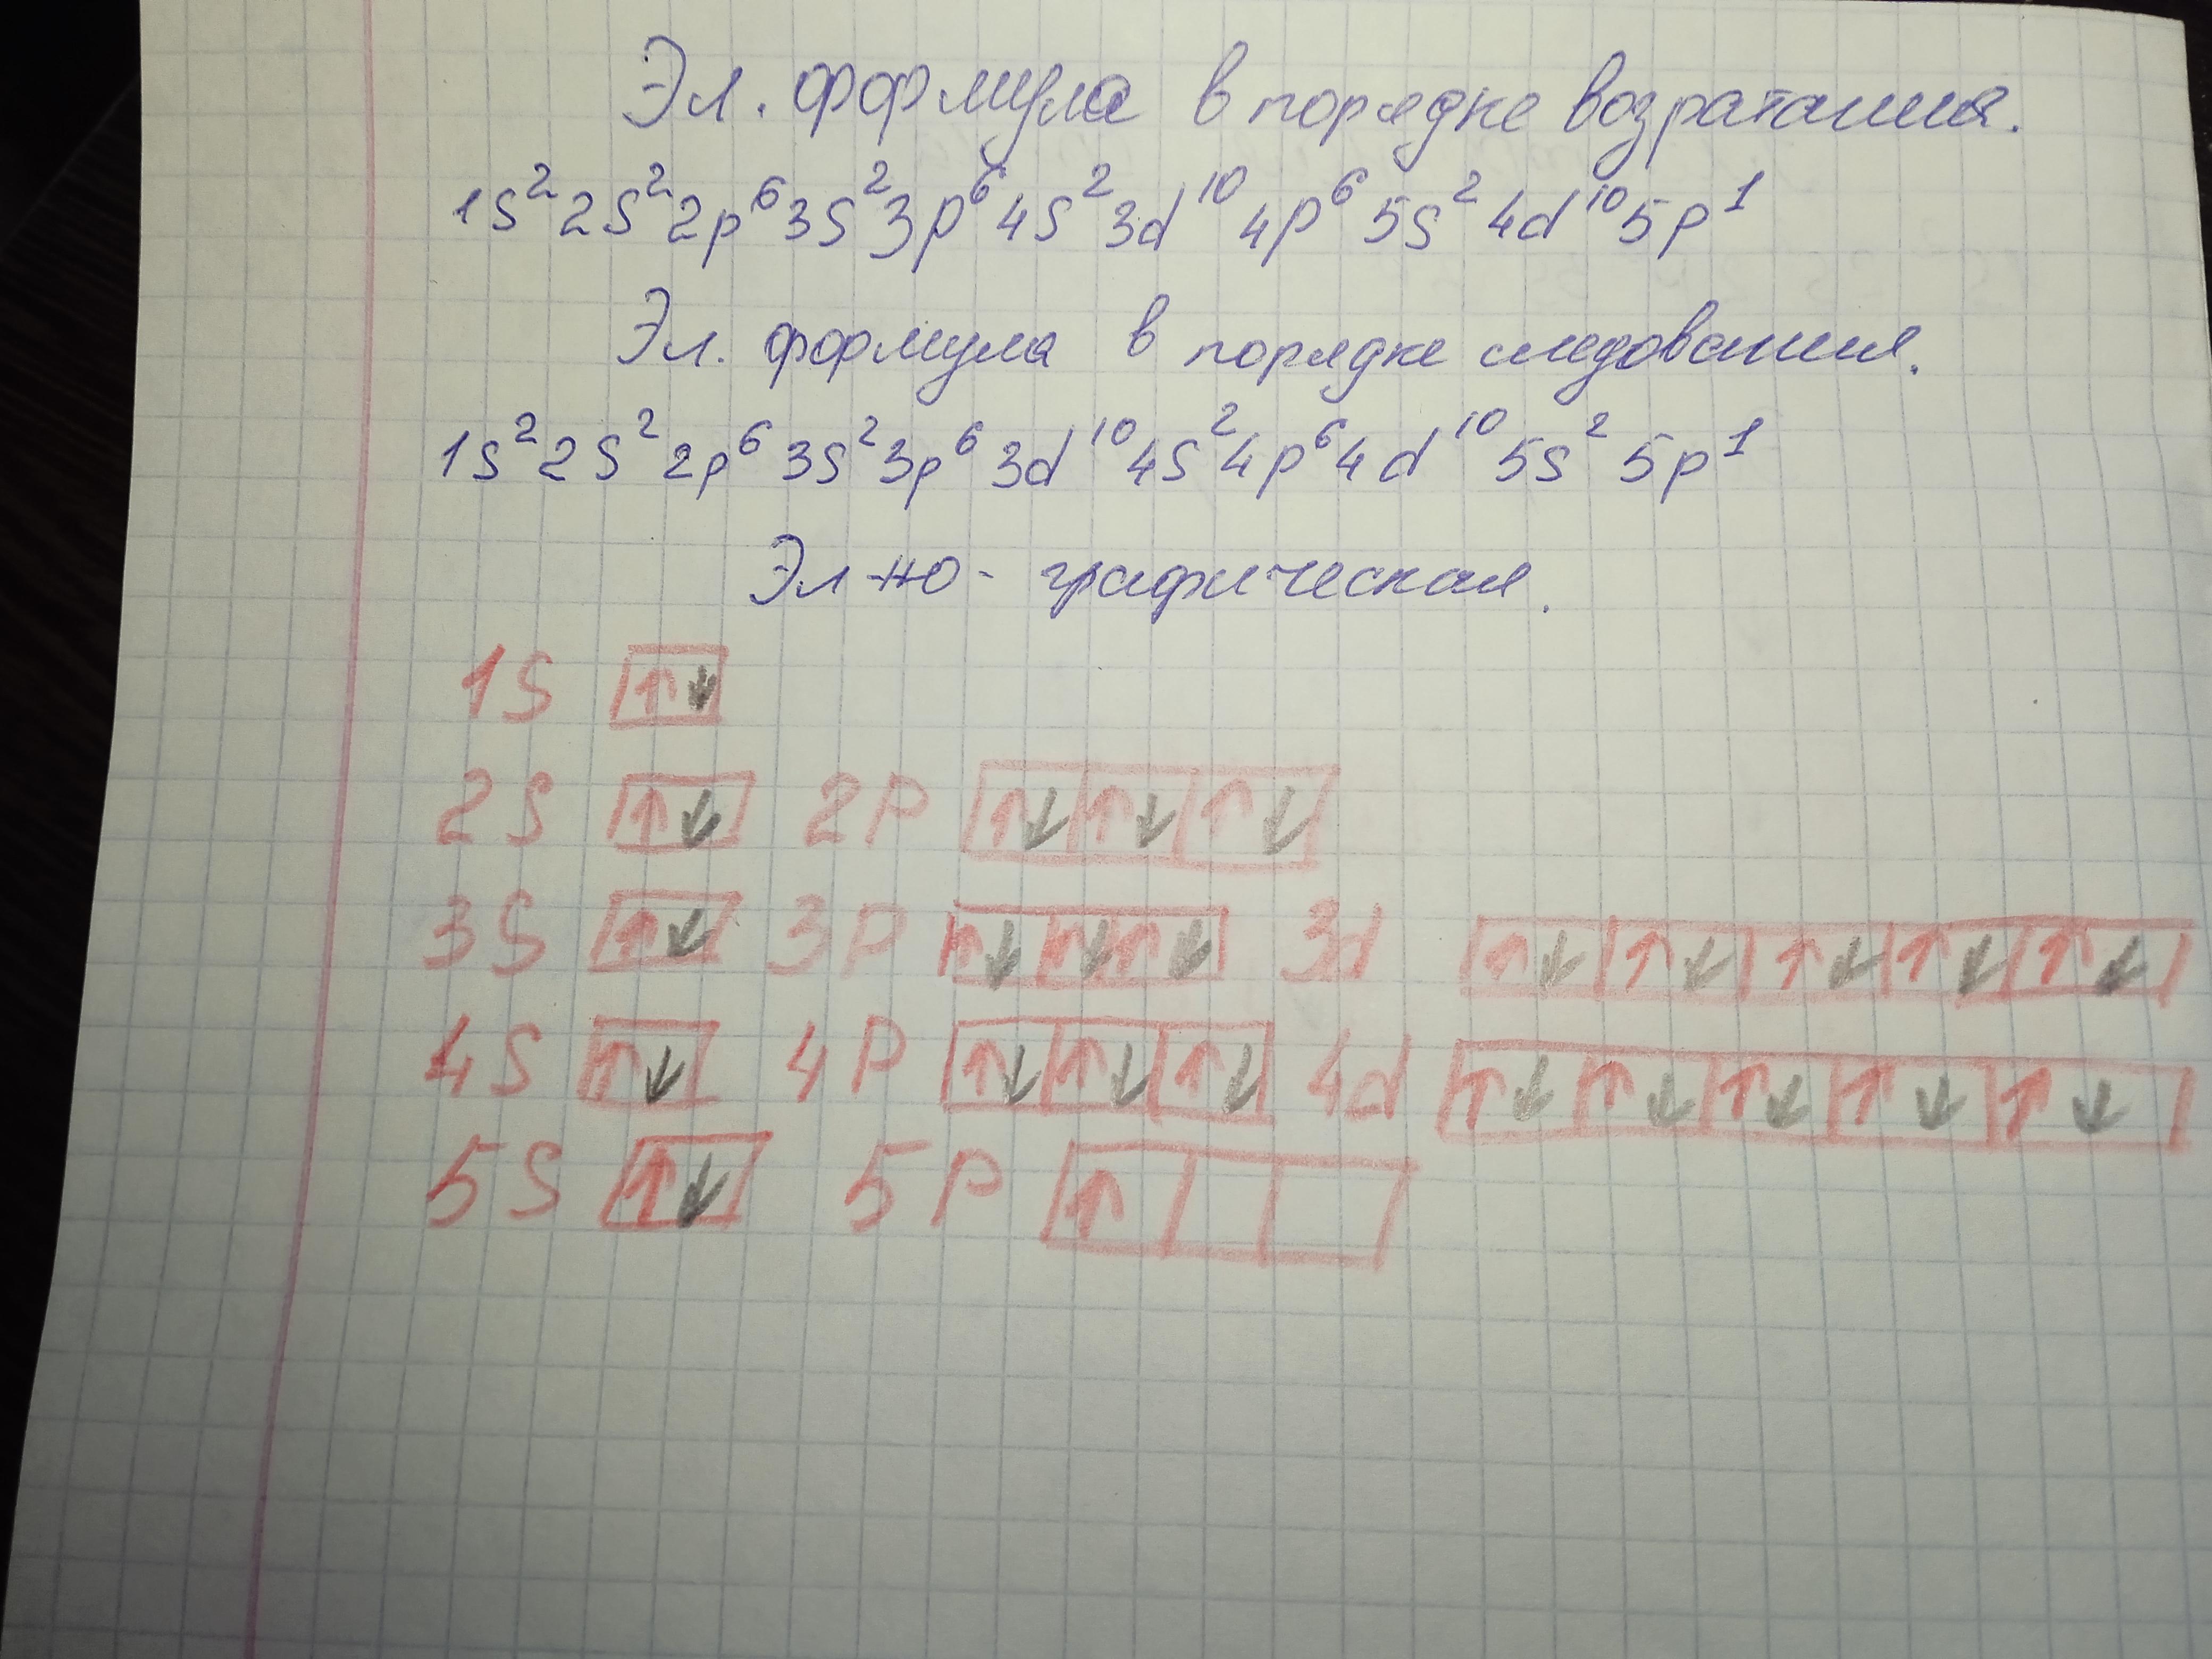 Эл. формула в порядке возратания.
1s² 2s² 2p⁶ 3s² 3p⁶ 4s² 3d¹⁰ 4p⁶ 5s² 4d¹⁰ 5p¹
Эл. формула в порядке следования.
1s² 2s² 2p⁶ 3s² 3p⁶ 3d¹⁰ 4s² 4p⁶ 4d¹⁰ 5s² 5p¹
Эл-но-графическая.
1S ↑↓
2S ↑↓ 2P ↑↓ ↑↓ ↑↓
3S ↑↓ 3P ↑↓ ↑↓ ↑↓ 3d ↑↓ ↑↓ ↑↓ ↑↓ ↑↓
4S ↑↓ 4P ↑↓ ↑↓ ↑↓ 4d ↑↓ ↑↓ ↑↓ ↑↓ ↑↓
5S ↑↓ 5P ↑